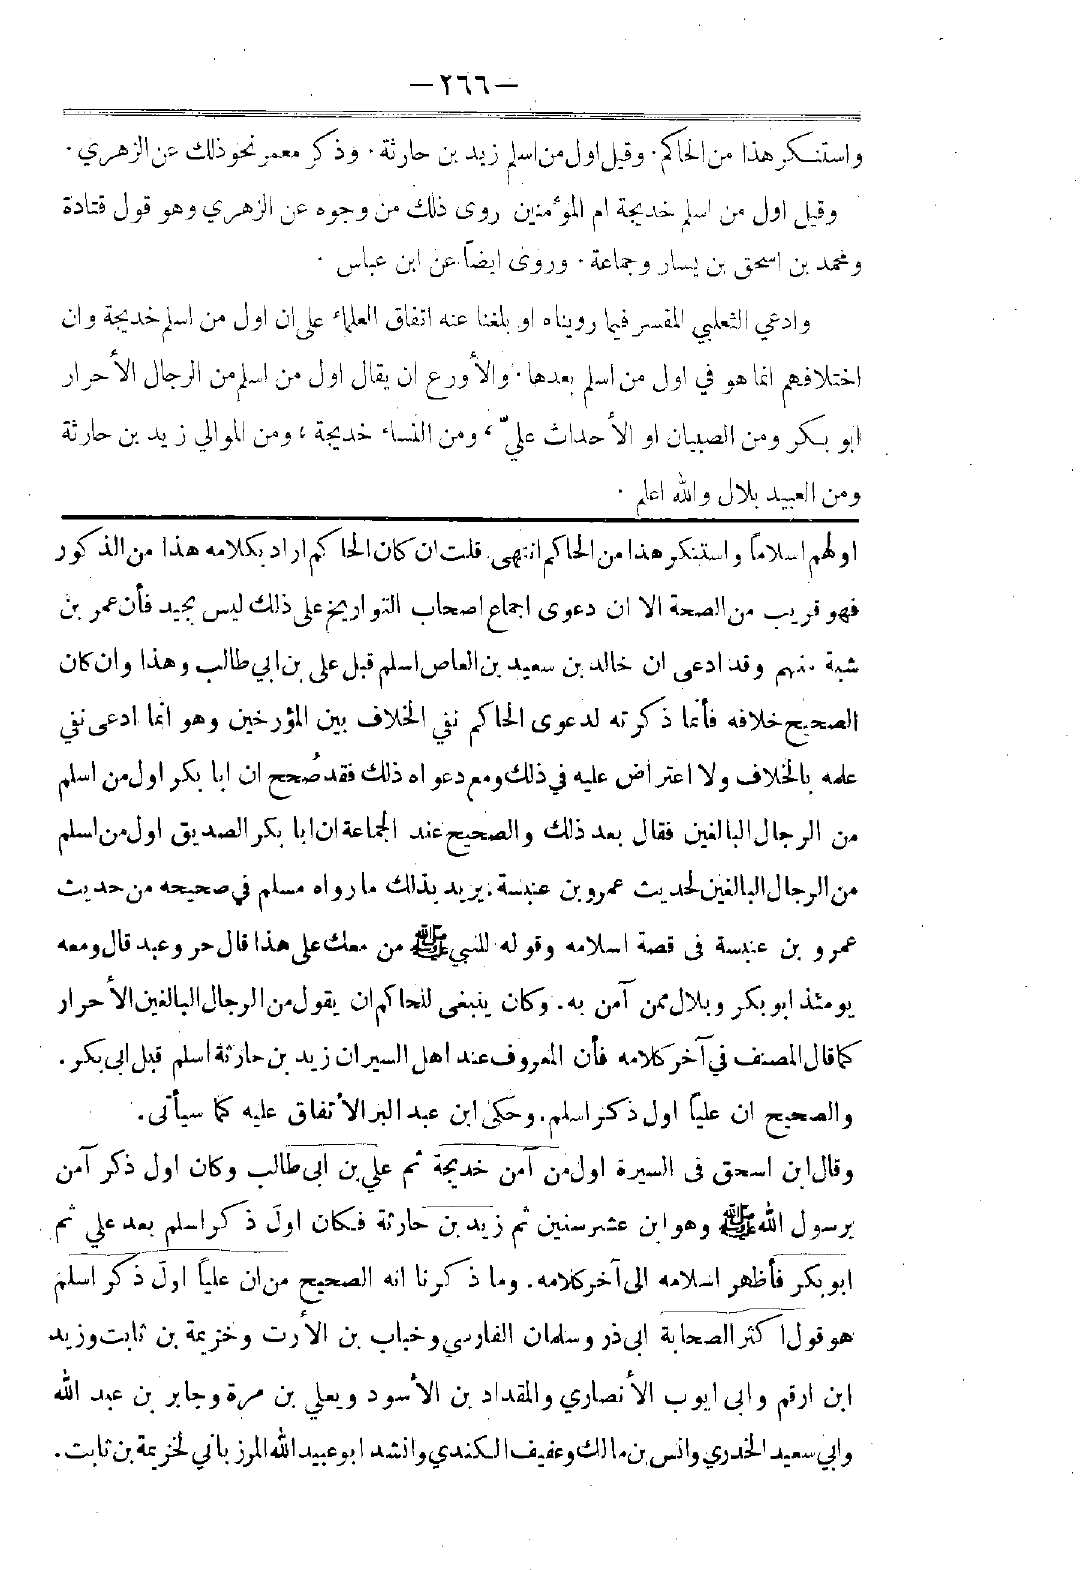 —٢٦٦—
واستنكر هذا من الحاكم · وقيل اول من اسلم زيد بن حارثة · وذكر معمر نحو ذلك عن الزهري ·
وقيل اول من اسلم خديجة ام المؤمنين روى ذلك من وجوه عن الزهري وهو قول قتادة
ومحمد بن اسحق بن يسار وجماعة · وروى ايضاً عن ابن عباس ·
وادعي الثعلبي المفسر فيما رويناه او بلغنا عنه اتفاق العلماء على ان اول من اسلم خديجة وان
اختلافهم انما هو في اول من اسلم بعدها · والأورع ان يقال اول من اسلم من الرجال الأحرار
ابو بكر ومن الصبيان او الأحداث عليّ ، ومن النساء خديجة ، ومن الموالي زيد بن حارثة
ومن العبيد بلال والله اعلم ·
اولهم اسلاماً واستنكر هذا من الحاكم انتهى . قلت ان كان الحاكم اراد بكلامه هذا من الذكور
فهو قريب من الصحة الا ان دعوى اجماع اصحاب التواريخ على ذلك ليس بجيد فأن عمر بن
شبة منهم وقد ادعى ان خالد بن سعيد بن العاص اسلم قبل علي بن ابي طالب وهذا وان كان
الصحيح خلافه فأنما ذكرته لدعوى الحاكم نفي الخلاف بين المؤرخين وهو انما ادعى نفي
علمه بالخلاف ولا اعتراض عليه في ذلك ومع دعواه ذلك فقد صُحح ان ابا بكر اول من اسلم
من الرجال البالغين فقال بعد ذلك والصحيح عند الجماعة ان ابا بكر الصديق اول من اسلم
من الرجال البالغين لحديث عمرو بن عنبسة . يريد بذلك ما رواه مسلم في صحيحه من حديث
عمرو بن عنبسة فى قصة اسلامه وقوله للنبي ﷺ من معك على هذا قال حر وعبد قال ومعه
يومئذ ابو بكر وبلال ممن آمن به . وكان ينبغى للحاكم ان يقول من الرجال البالغين الأحرار
كما قال المصنف في آخر كلامه فأن المعروف عند اهل السير ان زيد بن حارثة اسلم قبل ابى بكر .
والصحيح ان علياً اول ذكر اسلم . وحكى ابن عبد البر الأتفاق عليه كما سيأتى .
وقال ابن اسحق فى السيرة اول من آمن خديجة ثم علي بن ابى طالب وكان اول ذكر آمن
برسول الله ﷺ وهو ابن عشر سنين ثم زيد بن حارثة فكان اولَ ذكر اسلم بعد علي ثم
ابو بكر فأظهر اسلامه الى آخر كلامه . وما ذكرنا انه الصحيح من ان علياً اولَ ذكر اسلم
هو قول اكثر الصحابة ابى ذر وسلمان الفارسي وخباب بن الأرت وخزيمة بن ثابت وزيد
ابن ارقم وابى ايوب الأنصاري والمقداد بن الأسود ويعلي بن مرة وجابر بن عبد الله
وابي سعيد الخدري وانس بن مالك وعفيف الكندي وانشد ابو عبيد الله المرزباني لخزيمة بن ثابت .